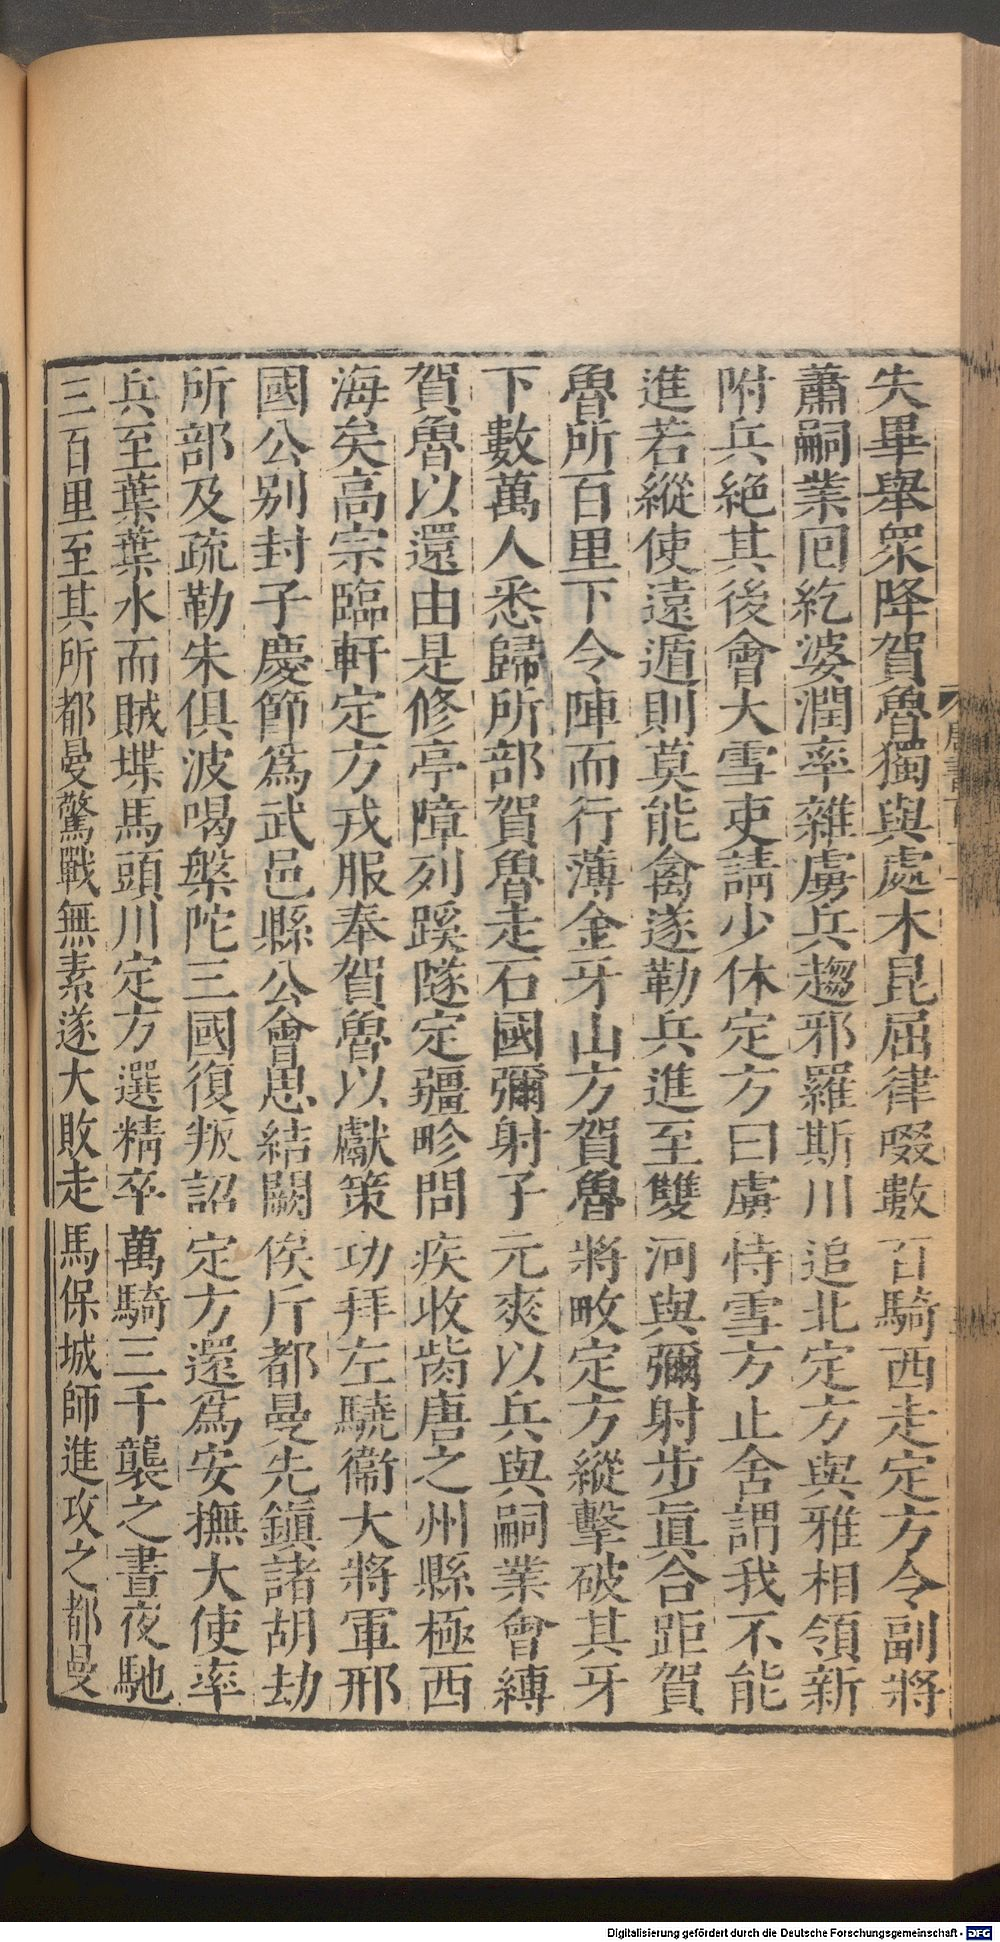 失畢舉衆降賀魯獨與處木昆屈律啜數百騎西走定方令副將
蕭嗣業囘紇婆潤率雜虜兵趨邪羅斯川追北定方與雅相領新
附兵絶其後會大雪吏請少休定方曰虜恃雪方止舍謂我不能
進若縱使遠遁則莫能禽遂勒兵進至雙河與彌射步眞合距賀
魯所百里下令陣而行薄金牙山方賀魯將畋定方縱擊破其牙
下數萬人悉歸所部賀魯走石國彌射子元爽以兵與嗣業會縛
賀魯以還由是修亭障列蹊隧定疆畛問疾收胔唐之州縣極西
海矣高宗臨軒定方戎服奉賀魯以獻策功拜左驍衞大將軍邢
國公别封子慶節爲武邑縣公會思結闕俟斤都曼先鎭諸胡劫
所部及疏勒朱俱波喝槃陀三國復叛詔定方還爲安撫大使率
兵至葉葉水而賊堞馬頭川定方選精卒萬騎三千襲之晝夜馳
三百里至其所都曼驚戰無素遂大敗走馬保城師進攻之都曼
Digitalisierung gefördert durch die Deutsche Forschungsgemeinschaft - DFG